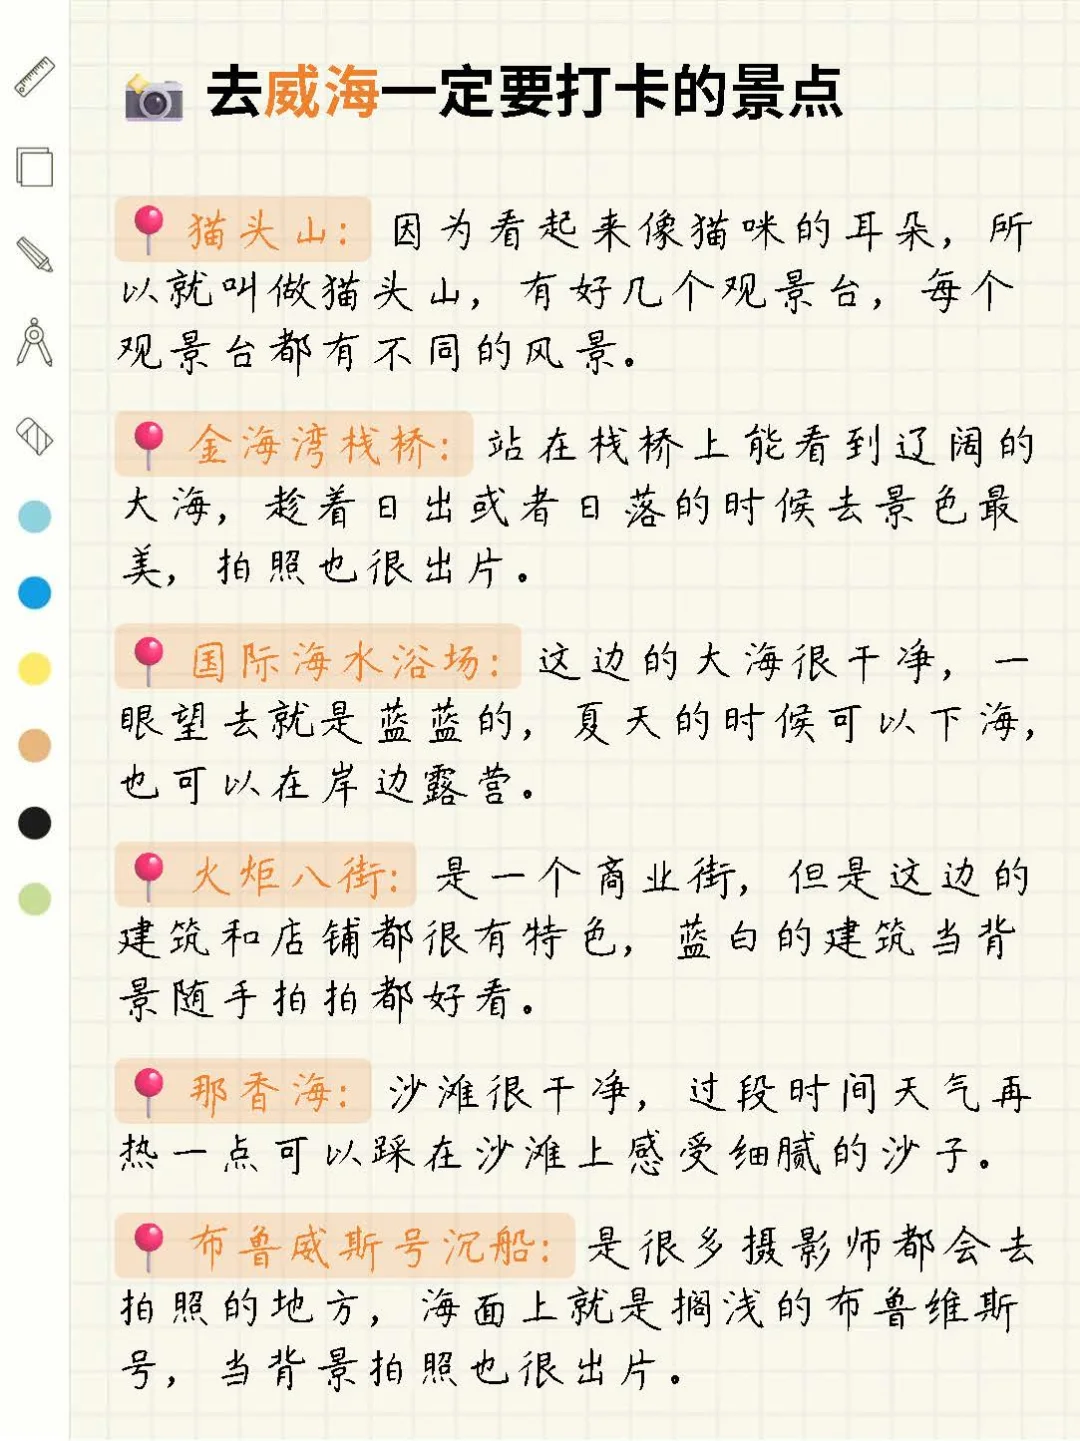 去威海一定要打卡的景点
猫头山：因为看起来像猫咪的耳朵，所
以就叫做猫头山，有好几个观景台，每个
观景台都有不同的风景。
金海湾栈桥：站在栈桥上能看到辽阔的
大海，趁着日出或者日落的时候去景色最
美，拍照也很出片。
国际海水浴场：这边的大海很干净，一
眼望去就是蓝蓝的，夏天的时候可以下海，
也可以在岸边露营。
火炬八街：是一个商业街，但是这边的
建筑和店铺都很有特色，蓝白的建筑当背
景随手拍拍都好看。
那香海：沙滩很干净，过段时间天气再
热一点可以踩在沙滩上感受细腻的沙子。
布鲁威斯号沉船：是很多摄影师都会去
拍照的地方，海面上就是搁浅的布鲁维斯
号，当背景拍照也很出片。